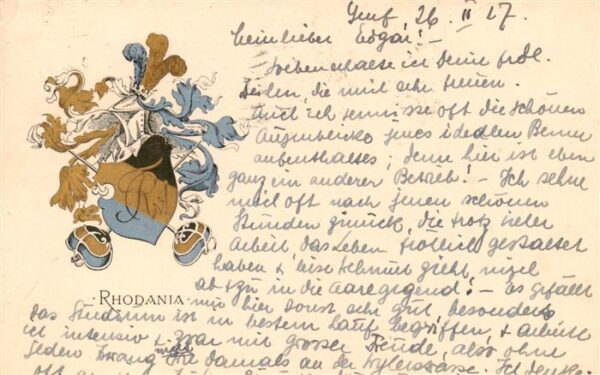 Genf, 26. II 27.
Mein lieber Edgar! –
Soeben erhalte ich Deine frdl.
Zeilen, die mich sehr freuen.
Auch ich vermisse oft die schönen
Augenblicke jenes idealen Berner
aufenthaltes; denn hier ist eben
ganz ein anderer Betrieb! – Ich sehne
mich oft nach jenen schönen
Stunden zurück, die trotz vieler
Arbeit das Leben fröhlich gestaltet
haben & leise Sehnsucht zieht mich
ab & zu in die Aaregegend! – es gefällt
RHODANIA
mir hier sonst sehr gut, besonders
das Studium ist in bestem Lauf begriffen, & arbeite
ich intensiv & zwar mit grosser Freude, also ohne
jeden Zwang, nicht wie damals an der Wylerstrasse. Ich denke
oft an